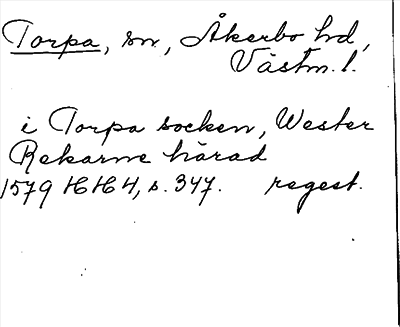 Torpa, sn, Åkerbo hd,
Västm. l.
i Torpa socken, Wester
Rekarne härad
1579 HH 4, s. 347. regest.